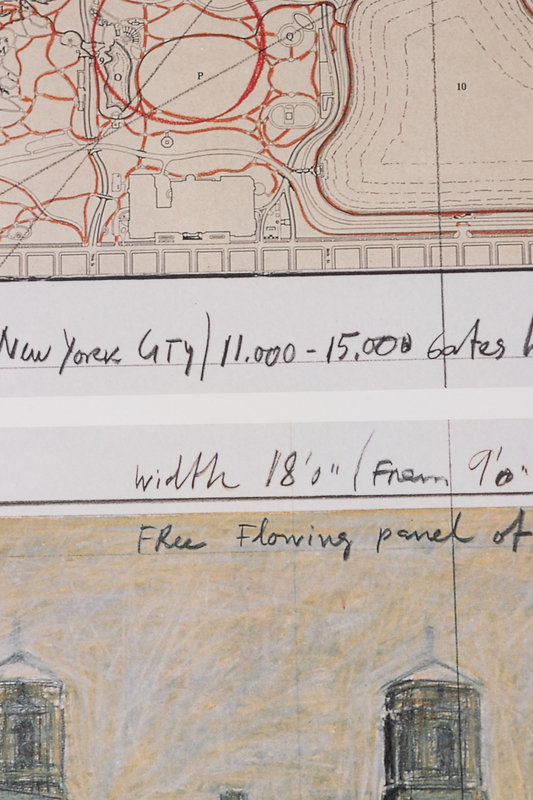 Q
O
P
10
New York CiTy / 11.000 - 15.000 Gates
width 18'0" / From 9'0"
FRee Flowing panel of